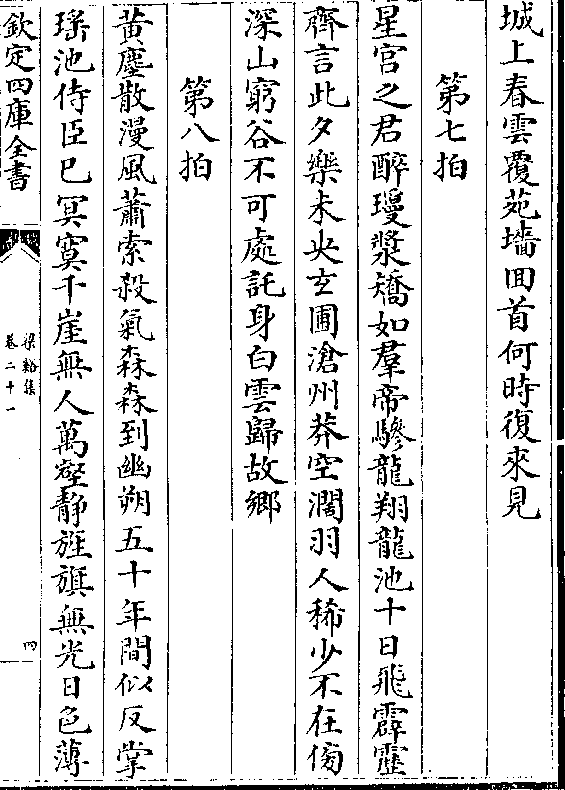 城上春雲覆苑墻囬首何時復來見
第七拍
星宫之君醉瓊漿矯如羣帝驂龍翔龍池十日飛霹靂
齊言此夕樂未央玄圃滄州莽空濶羽人稀少不在傍
深山窮谷不可處託身白雲歸故鄉
第八拍
黄塵散漫風蕭索殺氣森森到幽朔五十年間似反掌
瑤池侍臣已冥寞千崖無人萬壑静旌旗無光日色薄
欽定四庫全書
梁谿集
卷二十一
四